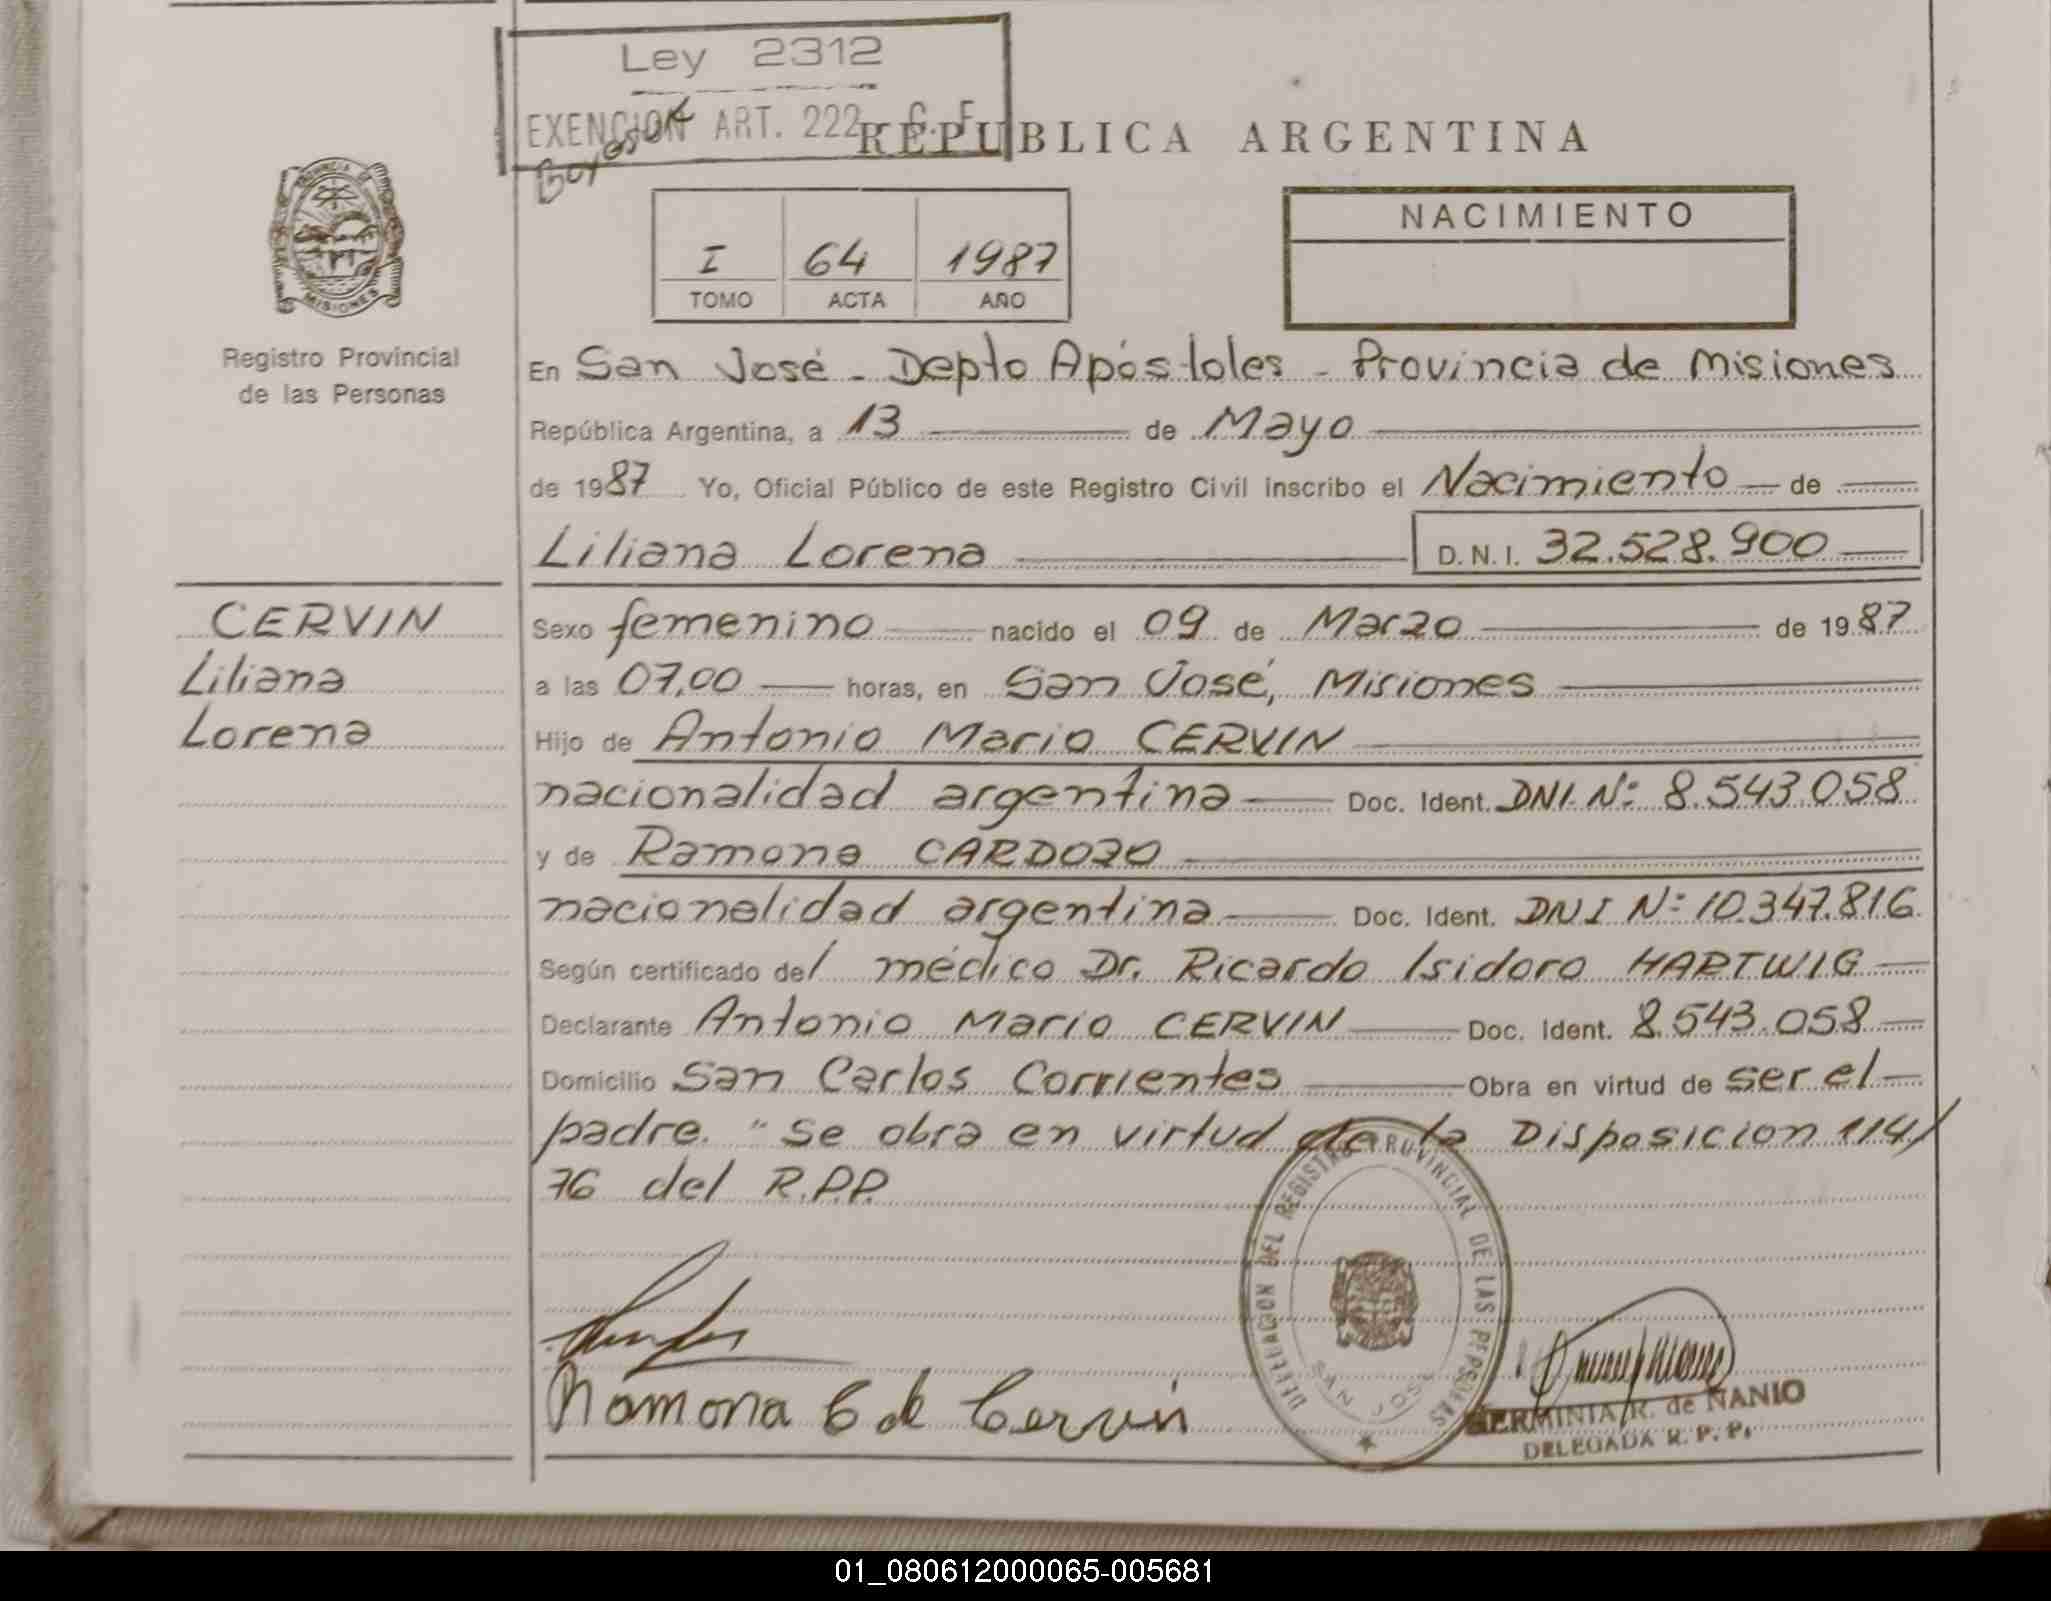 Ley 2312
EXENCION ART. 222 C. F.
REPUBLICA ARGENTINA
PROVINCIA DE
MISIONES
Registro Provincial
de las Personas
I 64 1987
TOMO ACTA AÑO
NACIMIENTO
En San José - Depto Apóstoles - Provincia de Misiones
República Argentina, a 13 de Mayo
de 1987 Yo, Oficial Público de este Registro Civil inscribo el Nacimiento de
Liliana Lorena D.N.I. 32.528.900
CERVIN
Liliana
Lorena
Sexo femenino nacido el 09 de Marzo de 1987
a las 07,00 horas, en San José, Misiones
Hijo de Antonio Mario CERVIN
nacionalidad argentina Doc. Ident. DNI. Nº 8.543.058
y de Ramona CARDOZO
nacionalidad argentina Doc. Ident. DNI Nº 10.347.816
Según certificado del médico Dr. Ricardo Isidoro HARTWIG
Declarante Antonio Mario CERVIN Doc. Ident. 8.543.058
Domicilio San Carlos Corrientes Obra en virtud de ser el
padre. "Se obra en virtud de la Disposicion 114/
76 del R.P.P.
DELEGACION DEL REGISTRO PROVINCIAL DE LAS PERSONAS
SAN JOSE
Ramona C de Cervin
HERMINIA R. de ÑANIO
DELEGADA R. P. P.
01_080612000065-005681